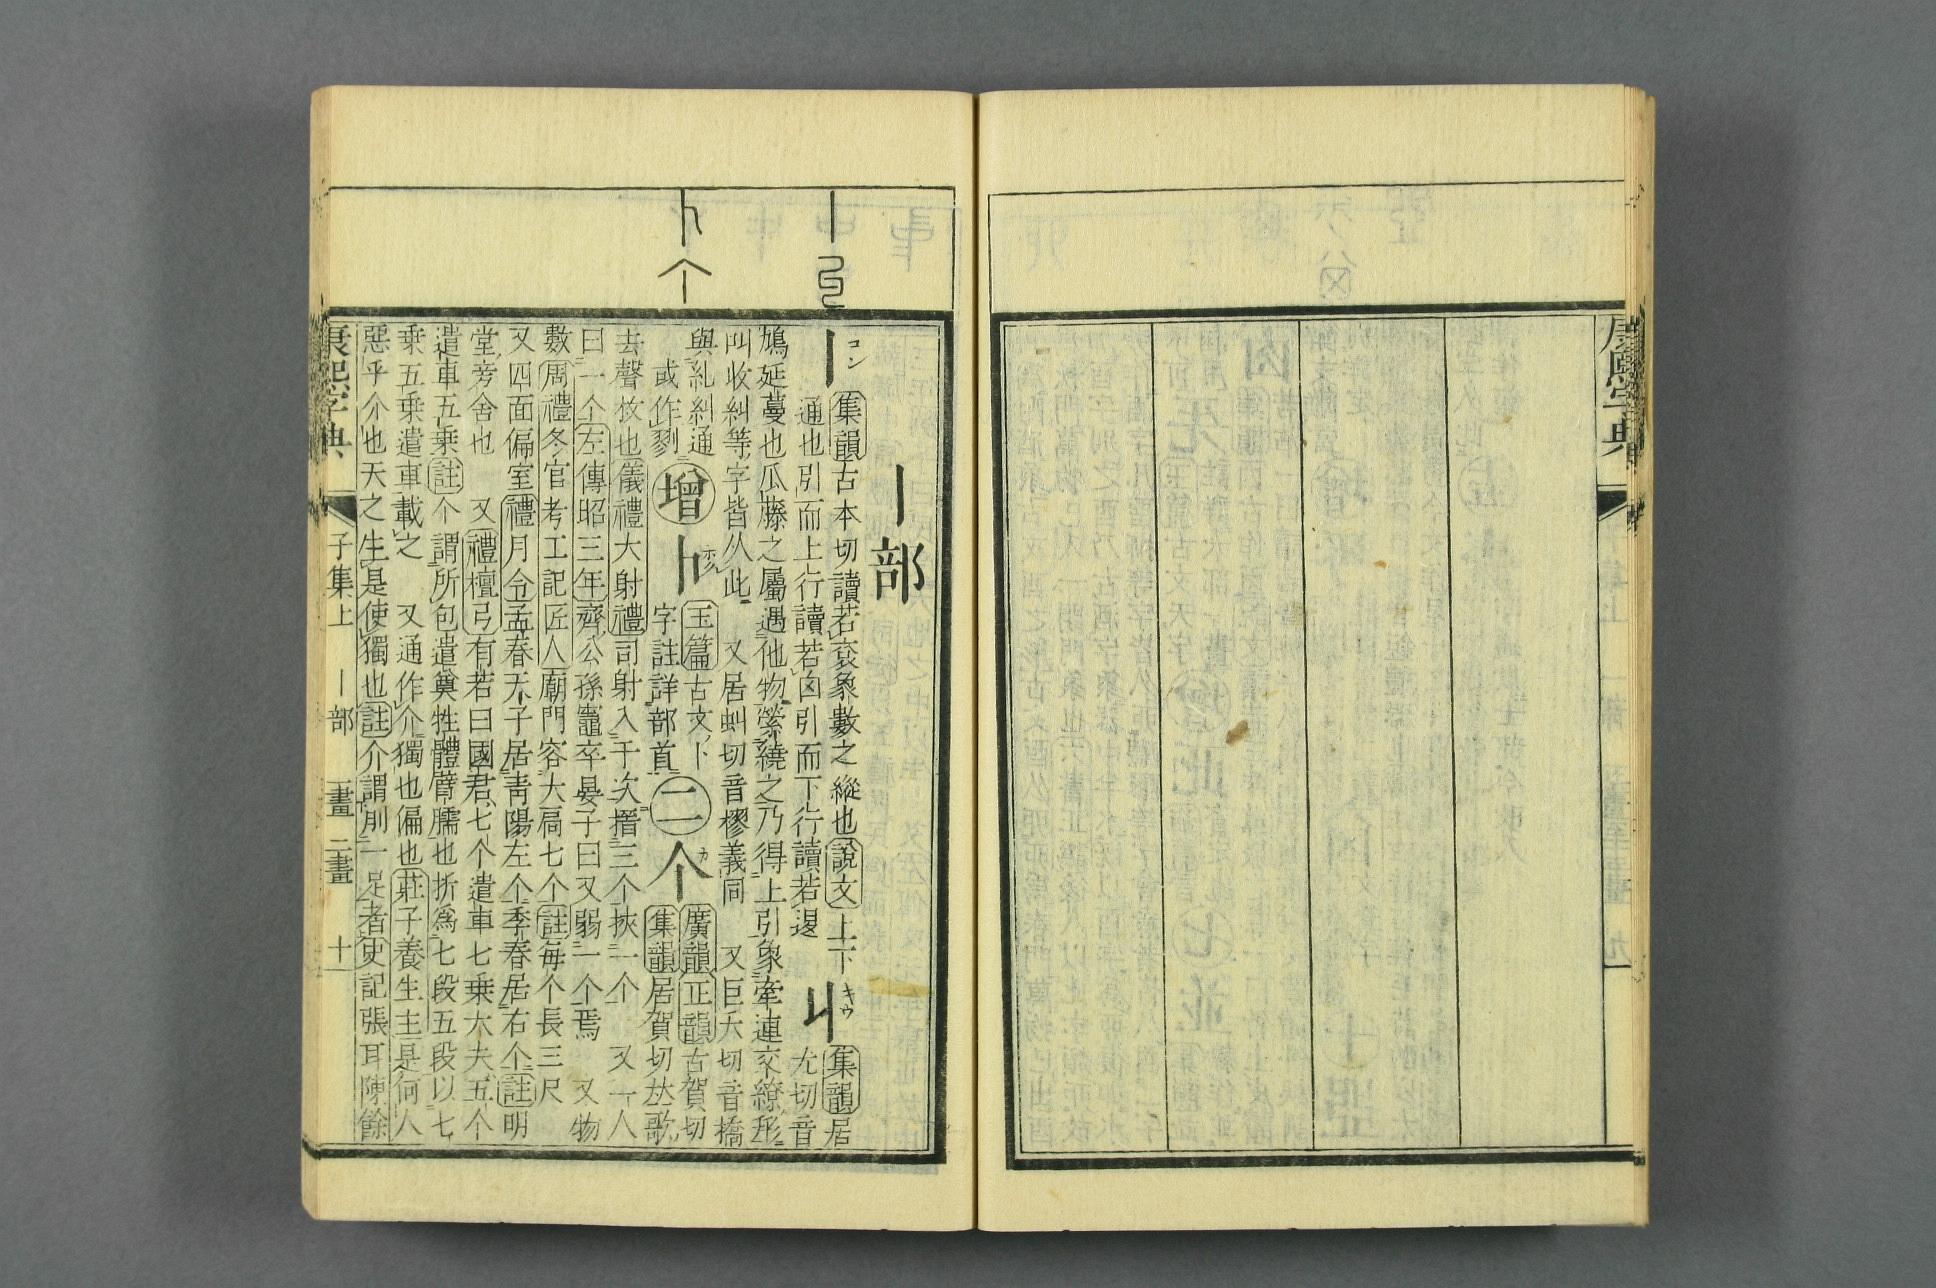 康熙字典
丨部
丨 コン 集韻古本切讀若袞象數之縱也說文上下
通也引而上行讀若囟引而下行讀若𨓤
丩 キウ 集韻居
尤切音
鳩延蔓也瓜藤之屬遇他物縈繞之乃得上引象牽連交繚形
叫收糾等字皆从此 又居虯切音樛義同 又巨夭切音撟
與糺糾通
或作㔃
增 玉篇古文卜
字註詳部首
二 个 カ 廣韻正韻古賀切
集韻居賀切𠀤歌
去聲枚也儀禮大射禮司射入于次搢三个挾一个 又一人
曰一个左傳昭三年齊公孫竈卒晏子曰又弱一个焉 又物
數周禮冬官考工記匠人廟門容大扃七个註每个長三尺
又四面偏室禮月令孟春天子居靑陽左个季春居右个註明
堂旁舍也 又禮檀弓有若曰國君七个遣車七乗大夫五个
遣車五乗註个謂所包遣奠牲體臂臑也折爲七段五段以七
乗五乗遣車載之 又通作介獨也偏也莊子養生主是何人
惡乎介也天之生是使獨也註介謂刖一足者史記張耳陳餘
康熙字典 子集上 丨部 一畫 二畫 十